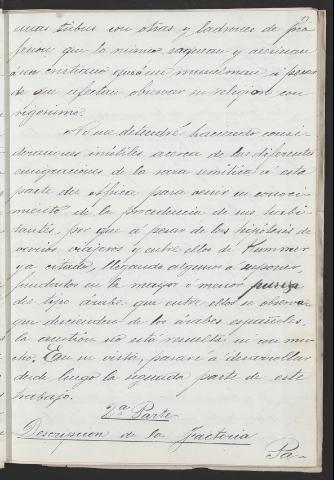 unas tribus con otras y ladrones de pro
fesion que lo mismo saquean y asesinan
á un cristiano que á un musulman, á pesar
de que afectan observar su religion con
rigorismo.
No me detendré haciendo consi
deraciones inútiles acerca de las diferentes
emigraciones de la raza semítica á esta
parte del Africa para venir en conoci
miento de la procedencia de sus habi
tantes, por que á pesar de las hipótesis de
varios viajeros y entre ellos de
ya citado, llegando algunos á suponer,
fundados en la mayor ó menor pureza
del tipo árabe que entre ellos se observa
que descienden de los árabes españoles,
la cuestion no está resuelta ni con mu
cho. En su vista, pasaré á desarrollar
desde luego la segunda parte de este
trabajo.
2ª Parte
Descripcion de la Factoria
Pa-